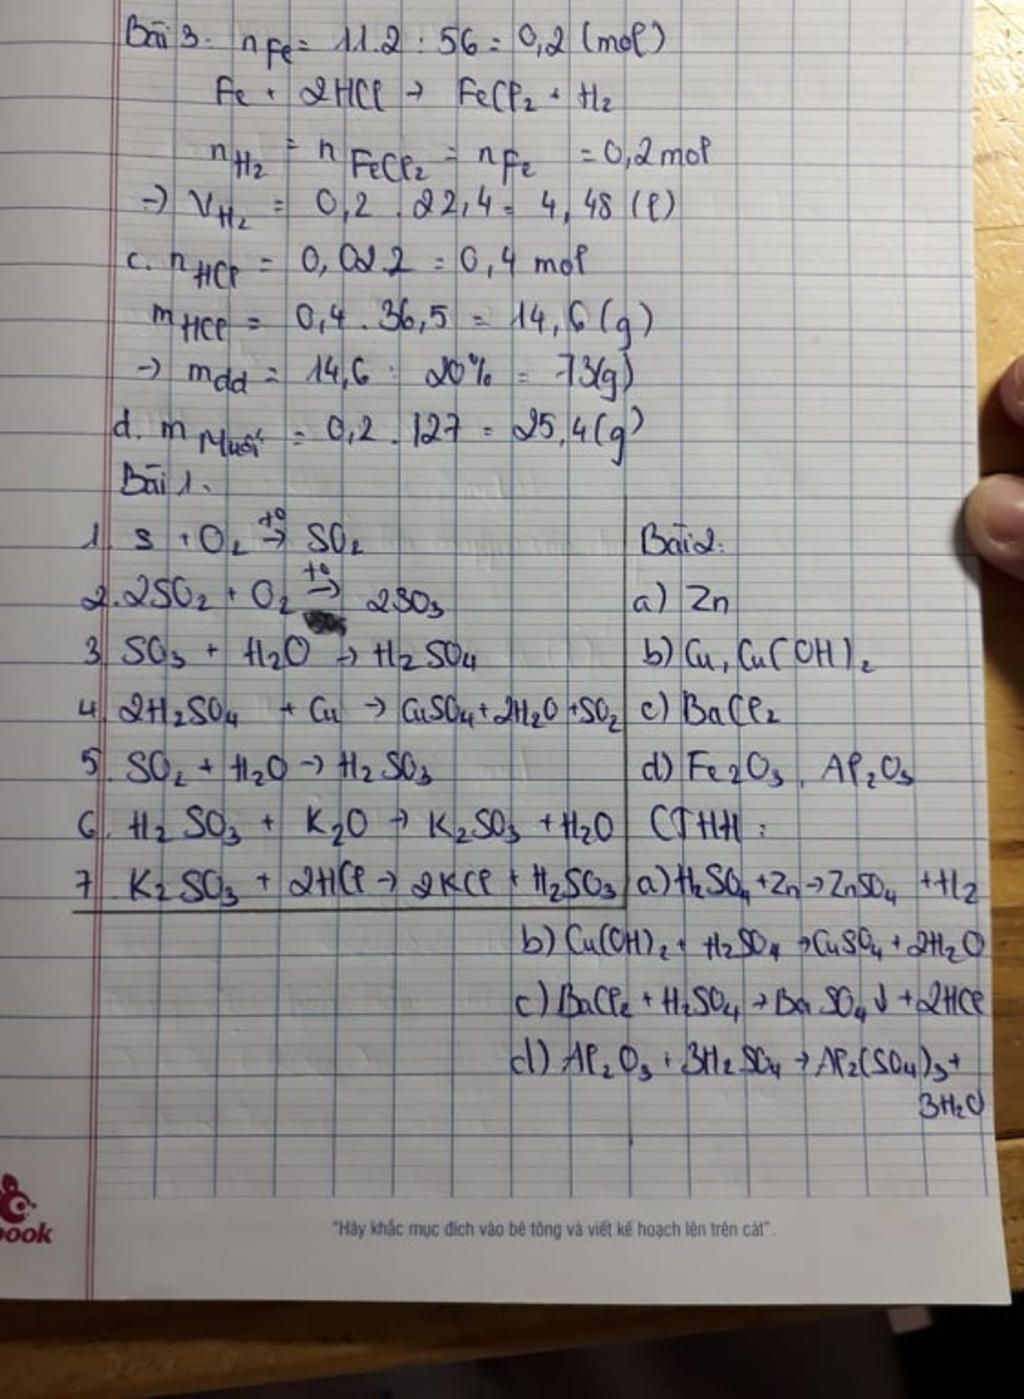 Bài 3. nFe = 11.2 : 56 = 0,2 (mol)
Fe + 2HCl → FeCl2 + H2
nH2 = nFeCl2 = nFe = 0,2 mol
→ VH2 = 0,2 . 22,4 = 4,48 (l)
c. nHCl = 0,02.2 = 0,4 mol
mHCl = 0,4 . 36,5 = 14,6 (g)
→ mdd = 14,6 : 20% = 73(g)
d. m Muối = 0,2 . 127 = 25,4 (g)
Bài 1.
1. S + O2 t° → SO2
2. 2SO2 + O2 t° → 2SO3
3. SO3 + H2O → H2SO4
4. 2H2SO4 + Cu → CuSO4 + 2H2O + SO2
5. SO2 + H2O → H2SO3
6. H2SO3 + K2O → K2SO3 + H2O
7. K2SO3 + 2HCl → 2KCl + H2SO3
Bài 2:
a) Zn
b) Cu, Cu(OH)2
c) BaCl2
d) Fe2O3, Al2O3
CTHH:
a) H2SO4 + Zn → ZnSO4 + H2
b) Cu(OH)2 + H2SO4 → CuSO4 + 2H2O
c) BaCl2 + H2SO4 → BaSO4↓ + 2HCl
d) Al2O3 + 3H2SO4 → Al2(SO4)3 +
3H2O
"Hãy khắc mục đích vào bê tông và viết kế hoạch lên trên cát".
book